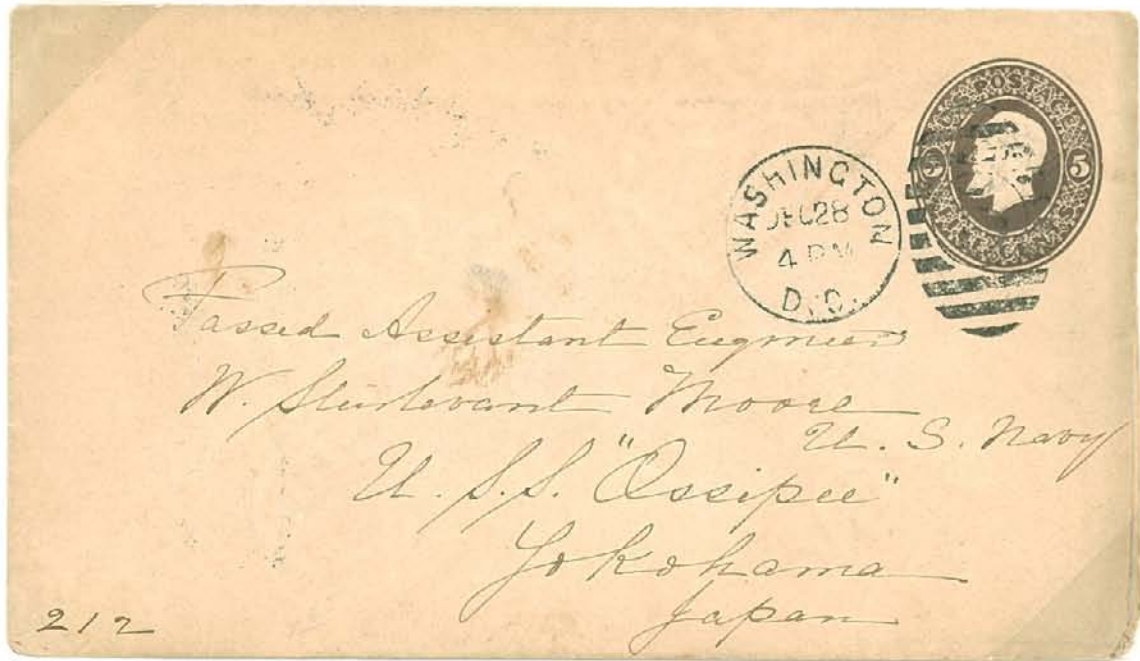 U.S. POSTAGE
5 5
CENTS
WASHINGTON
DEC 28
4 PM
D.C.
Passed Assistant Engineer
W. Sturtevant Moore
U. S. Navy
U. S. S. "Ossipee"
Yokohama
Japan
212